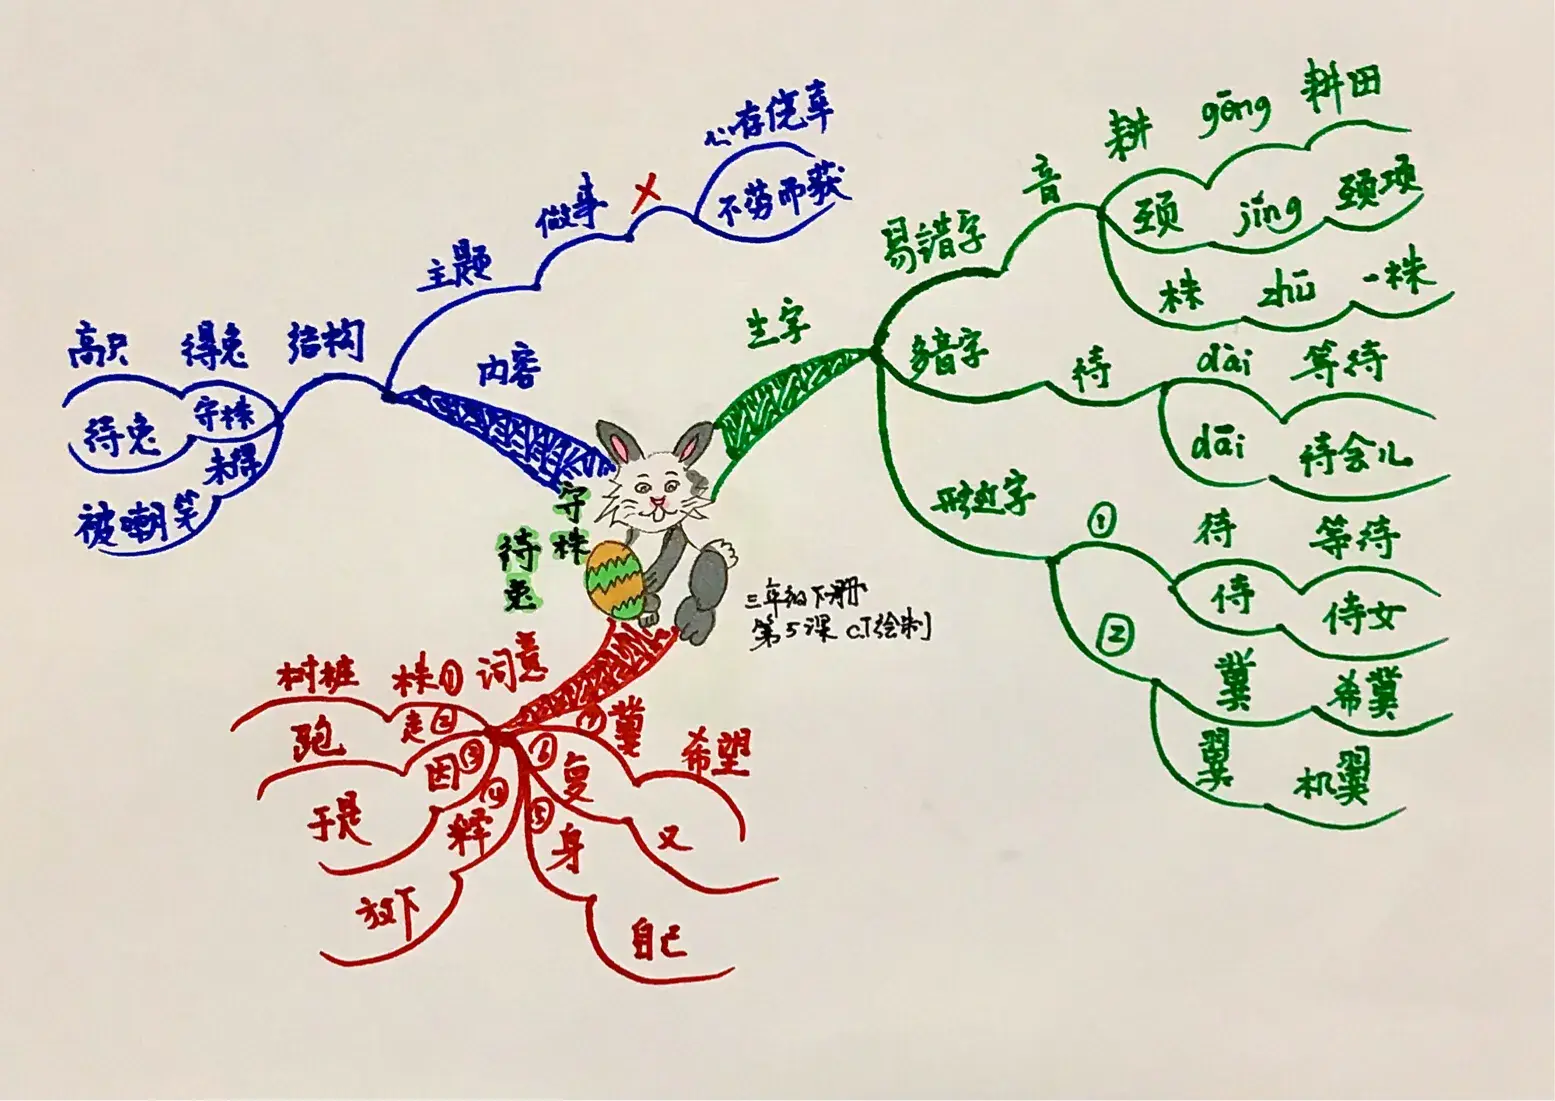 守株
待兔
三年级下册
第5课 CT绘制
生字
易错字
音
耕 gēng 耕田
颈 jǐng 颈项
株 zhū 一株
多音字
待
dài 等待
dāi 待会儿
形近字
① 待 等待
侍 侍女
② 冀 希冀
翼 机翼
词意
株① 树桩
走② 跑
因③ 于是
释④ 放下
⑤ 身 自己
⑥ 复 又
⑦ 冀 希望
内容
结构
得兔 高兴
守株 待兔
未得 被嘲笑
主题
做事 ×
心存侥幸
不劳而获